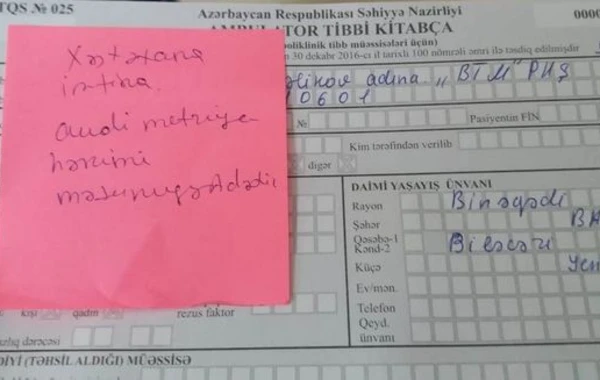 TQS № 025
Azərbaycan Respublikası Səhiyyə Nazirliyi
0000
TİBBİ KİTABÇA
poliklinik tibb müəssisələri üçün)
30 dekabr 2016-cı il tarixli 100 nömrəli əmri ilə təsdiq edilmişdir
adına "BTM" PHŞ
10601
№
Pasiyentin FİN
Kim tərəfindən verilib
digər
Xəstəxana
imtina
audi metriya
həkimi
DAİMİ YAŞAYIŞ ÜNVANI
Rayon Binəqədi
Şəhər BA
Qəsəbə-1 Biləcəri
Kənd-2
Küçə Yen
Ev/mən.
Telefon
Qeyd.
ünvanı
kişi qadın rezus faktor
dərəcəsi
DİYİ (TƏHSİL ALDIĞI) MÜƏSSİSƏ